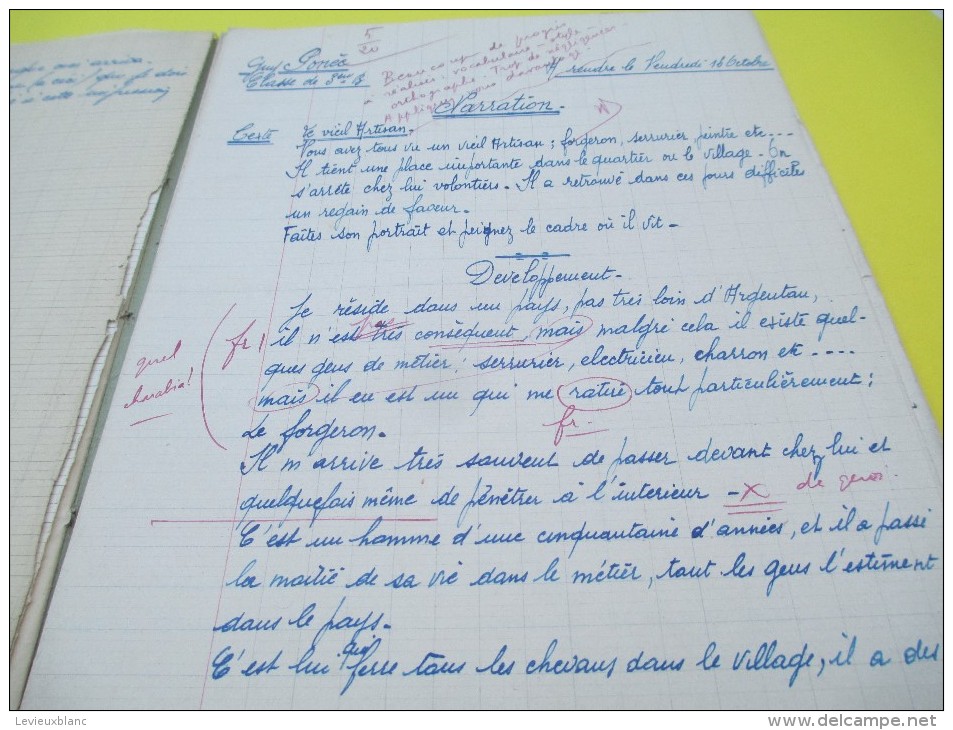 5
20
Guy
Classe de 3ème B
Beaucoup de progrès
réaliser. vocabulaire - style
orthographe. Trop de négligences
Appliquez vous davantage.
A rendre le Vendredi 16 Octobre
Narration.
Texte Le vieil Artisan.
Vous avez tous vu un vieil Artisan ; forgeron, serrurier peintre etc....
Il tient une place importante dans le quartier ou le village. On
s'arrête chez lui volontiers. Il a retrouvé dans ces jours difficiles
un regain de faveur.
Faites son portrait et peignez le cadre où il vit.
Developpement.
Je réside dans un pays, pas très loin d'Argentan,
fr ! il n'est très conséquent, mais malgré cela il existe quel-
quel
ques gens de métier ; serrurier, electricien, charron etc ....
charabia !
mais il en est un qui me ratire tout particulièrement ;
fr.
Le forgeron.
Il m'arrive très souvent de passer devant chez lui et
quelquefois même de pénétrer à l'interieur - X de quoi.
C'est un homme d'une cinquantaine d'années, et il a passé
la moitié de sa vie dans le métier, tout les gens l'estiment
dans le pays.
C'est lui qui ferre tous les chevaux dans le village, il a des
Levieuxblanc
www.delcampe.net